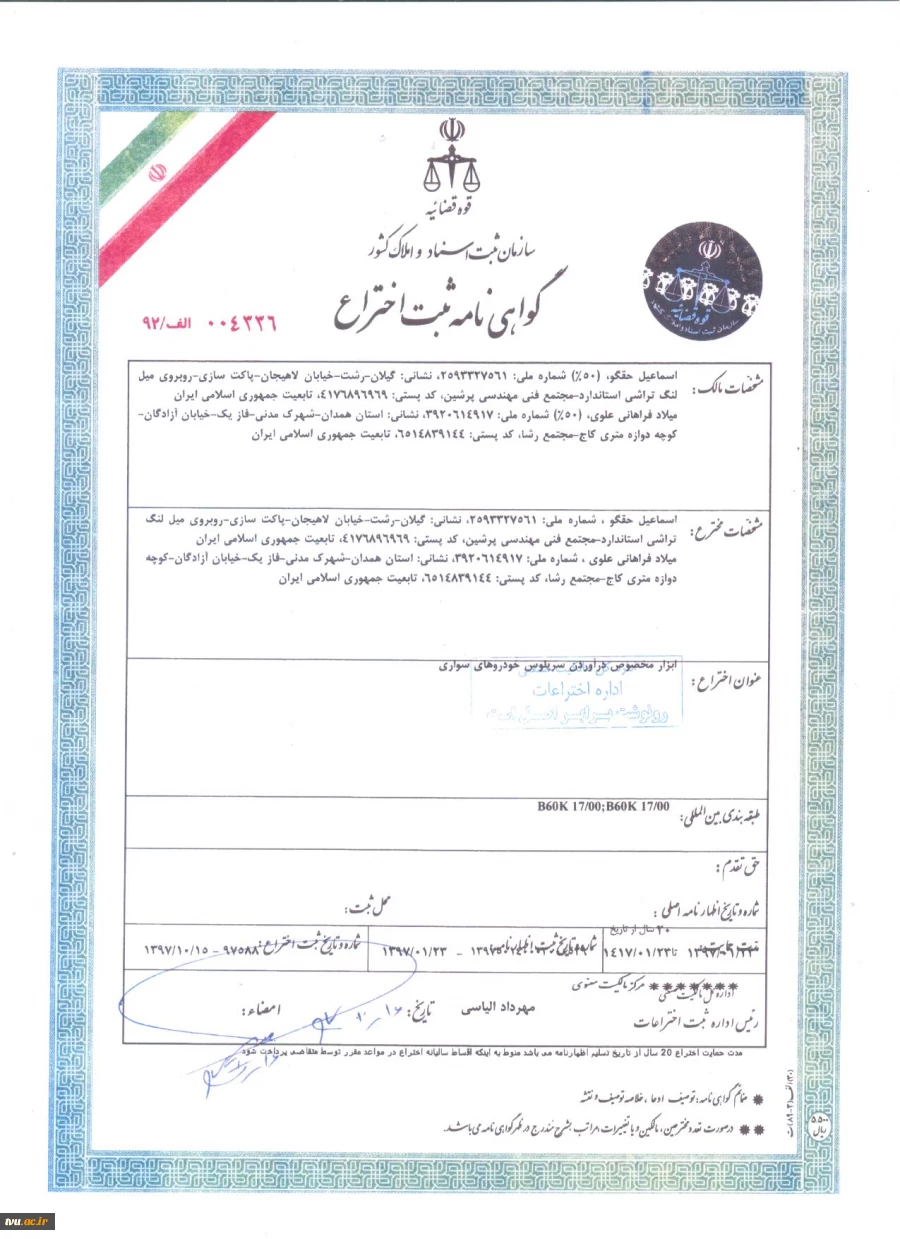 قوه قضائیه
سازمان ثبت اسناد و املاک کشور
گواهی نامه ثبت اختراع
۰۰۴۳۳٦ الف/۹۲
قوه قضائیه
مشخصات مالک:
اسماعیل حقگو، (۵۰٪) شماره ملی: ۲۵۹۳۳۲۷۵٦۱، نشانی: گیلان-رشت-خیابان لاهیجان-پاکت سازی-روبروی میل
لنگ تراشی استاندارد-مجتمع فنی مهندسی پرشین، کد پستی: ٤۱۷٦۸۹٦۹٦۹، تابعیت جمهوری اسلامی ایران
میلاد فراهانی علوی، (۵۰٪) شماره ملی: ۳۹۲۰٦۱٤۹۱۷، نشانی: استان همدان-شهرک مدنی-فاز یک-خیابان آزادگان-
کوچه دوازه متری کاج-مجتمع رشا، کد پستی: ٦۵۱٤۸۳۹۱٤٤، تابعیت جمهوری اسلامی ایران
مشخصات مخترع:
اسماعیل حقگو ، شماره ملی: ۲۵۹۳۳۲۷۵٦۱، نشانی: گیلان-رشت-خیابان لاهیجان-پاکت سازی-روبروی میل لنگ
تراشی استاندارد-مجتمع فنی مهندسی پرشین، کد پستی: ٤۱۷٦۸۹٦۹٦۹، تابعیت جمهوری اسلامی ایران
میلاد فراهانی علوی ، شماره ملی: ۳۹۲۰٦۱٤۹۱۷، نشانی: استان همدان-شهرک مدنی-فاز یک-خیابان آزادگان-کوچه
دوازه متری کاج-مجتمع رشا، کد پستی: ٦۵۱٤۸۳۹۱٤٤، تابعیت جمهوری اسلامی ایران
عنوان اختراع:
ابزار مخصوص درآوردن سرپلوس خودروهای سواری
اداره اختراعات
رونوشت برابر اصل است
طبقه بندی بین المللی:
B60K 17/00;B60K 17/00
حق تقدم:
شماره و تاریخ اظهارنامه اصلی:
محل ثبت:
۲۰ سال از تاریخ
مدت حمایت: ۱۳۹۷/۰۱/۲۳ تا ۱٤۱۷/۰۱/۲۳
شماره و تاریخ ثبت اظهارنامه: - ۱۳۹۷/۰۱/۲۳
شماره و تاریخ ثبت اختراع: ۹۷۵۸۸ - ۱۳۹۷/۱۰/۱۵
مرکز مالکیت معنوی
اداره کل مالکیت صنعتی
رئیس اداره ثبت اختراعات
مهرداد الیاسی
تاریخ:
امضاء:
مدت حمایت اختراع 20 سال از تاریخ تسلیم اظهارنامه می باشد منوط به اینکه اقساط سالیانه اختراع در مواعد مقرر توسط متقاضی پرداخت شود
✹ ضمائم گواهی نامه: توصیف ادعا، خلاصه توصیف و نقشه
✹✹ درصورت تعدد مخترعین، مالکین و یا تغییرات، مراتب بشرح مندرج در ظهر گواهی نامه می باشد.
۵۵۰۰
ریال
tvu.ac.ir